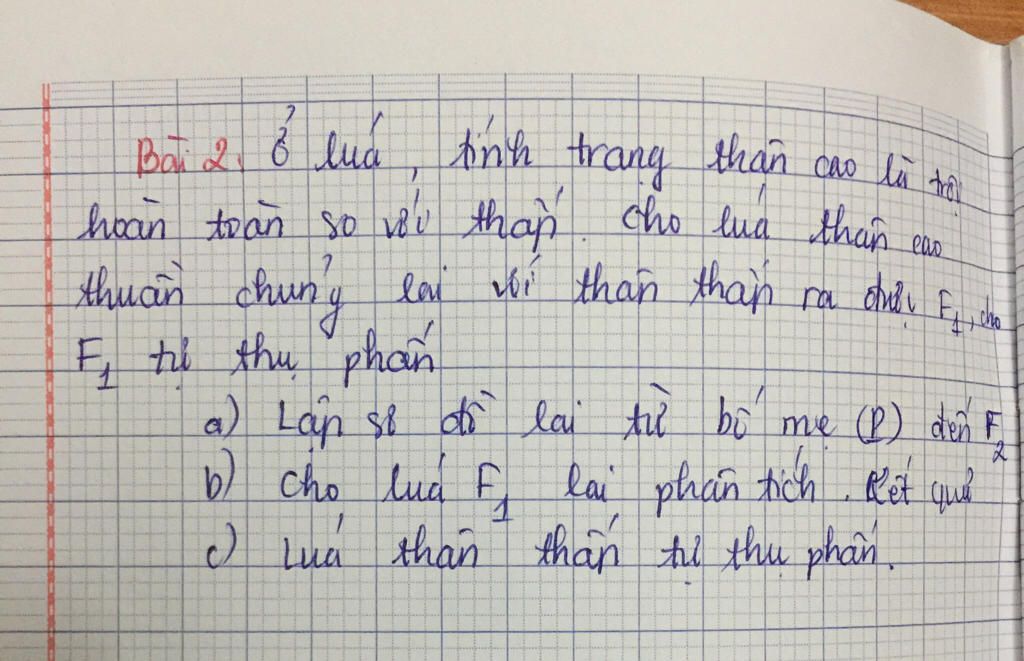 Bài 2. Ở luá, tính trạng thân cao là trội
hoàn toàn so với thấp. Cho luá thân cao
thuần chủng lai với thân thấp ra được F1, cho
F1 tự thụ phấn
a) Lập sơ đồ lai từ bố mẹ (P) đến F2
b) Cho luá F1 lai phân tích. Kết quả
c) Luá thân thấp tự thụ phấn.